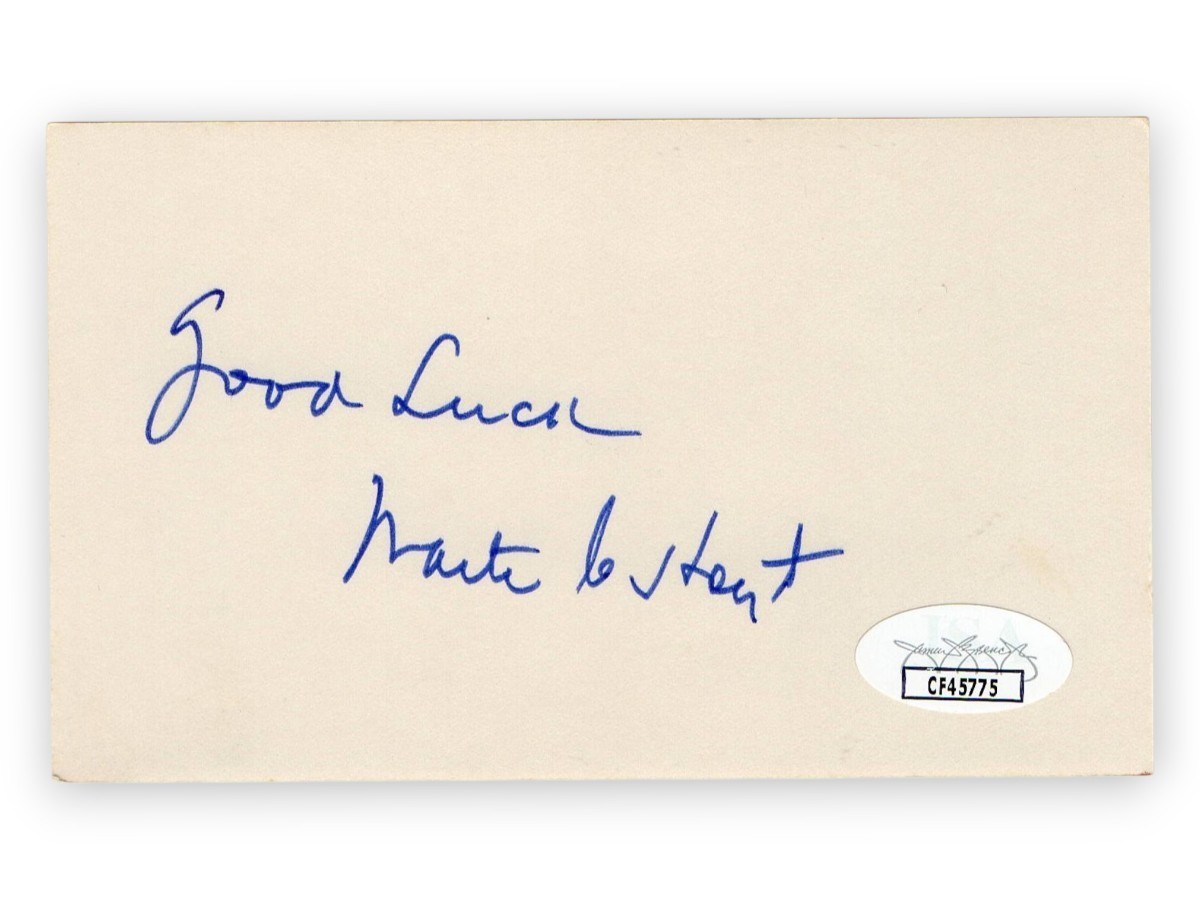 Good Luck
Waite C Hoyt
JSA
CF45775